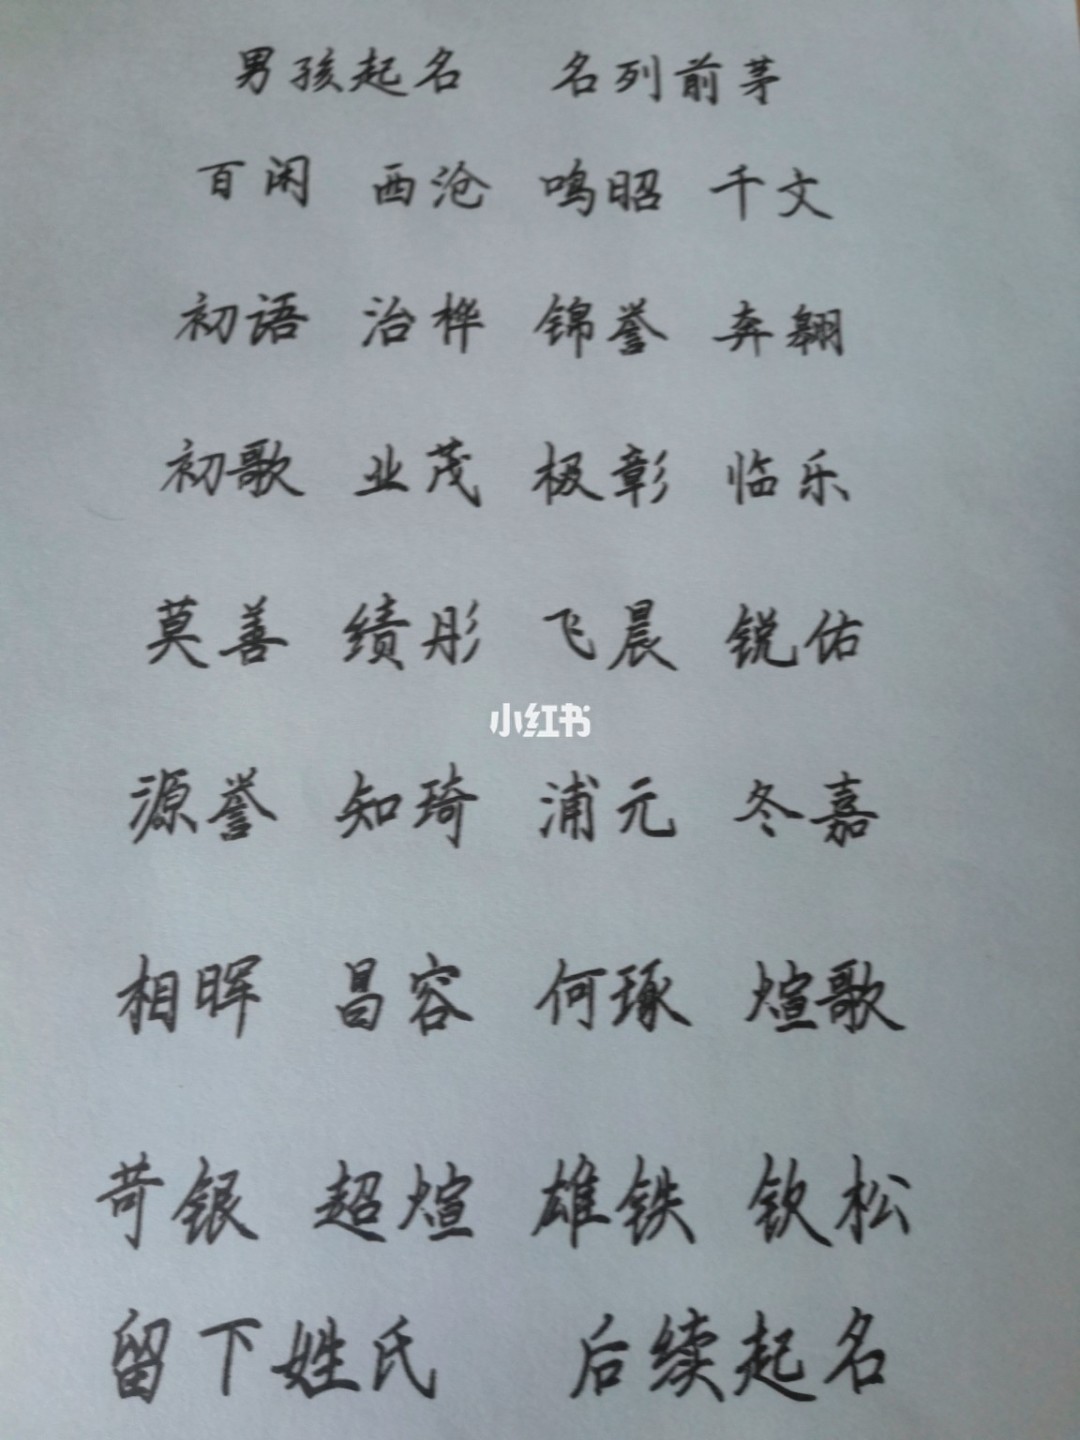 男孩起名 名列前茅
百闲 西沧 鸣昭 千文
初语 治桦 锦誉 奔翱
初歌 业茂 极彰 临乐
莫善 绩彤 飞晨 锐佑
小红书
源誉 知琦 浦元 冬嘉
相晖 昌容 何琢 煊歌
苛银 超煊 雄铁 钦松
留下姓氏 后续起名